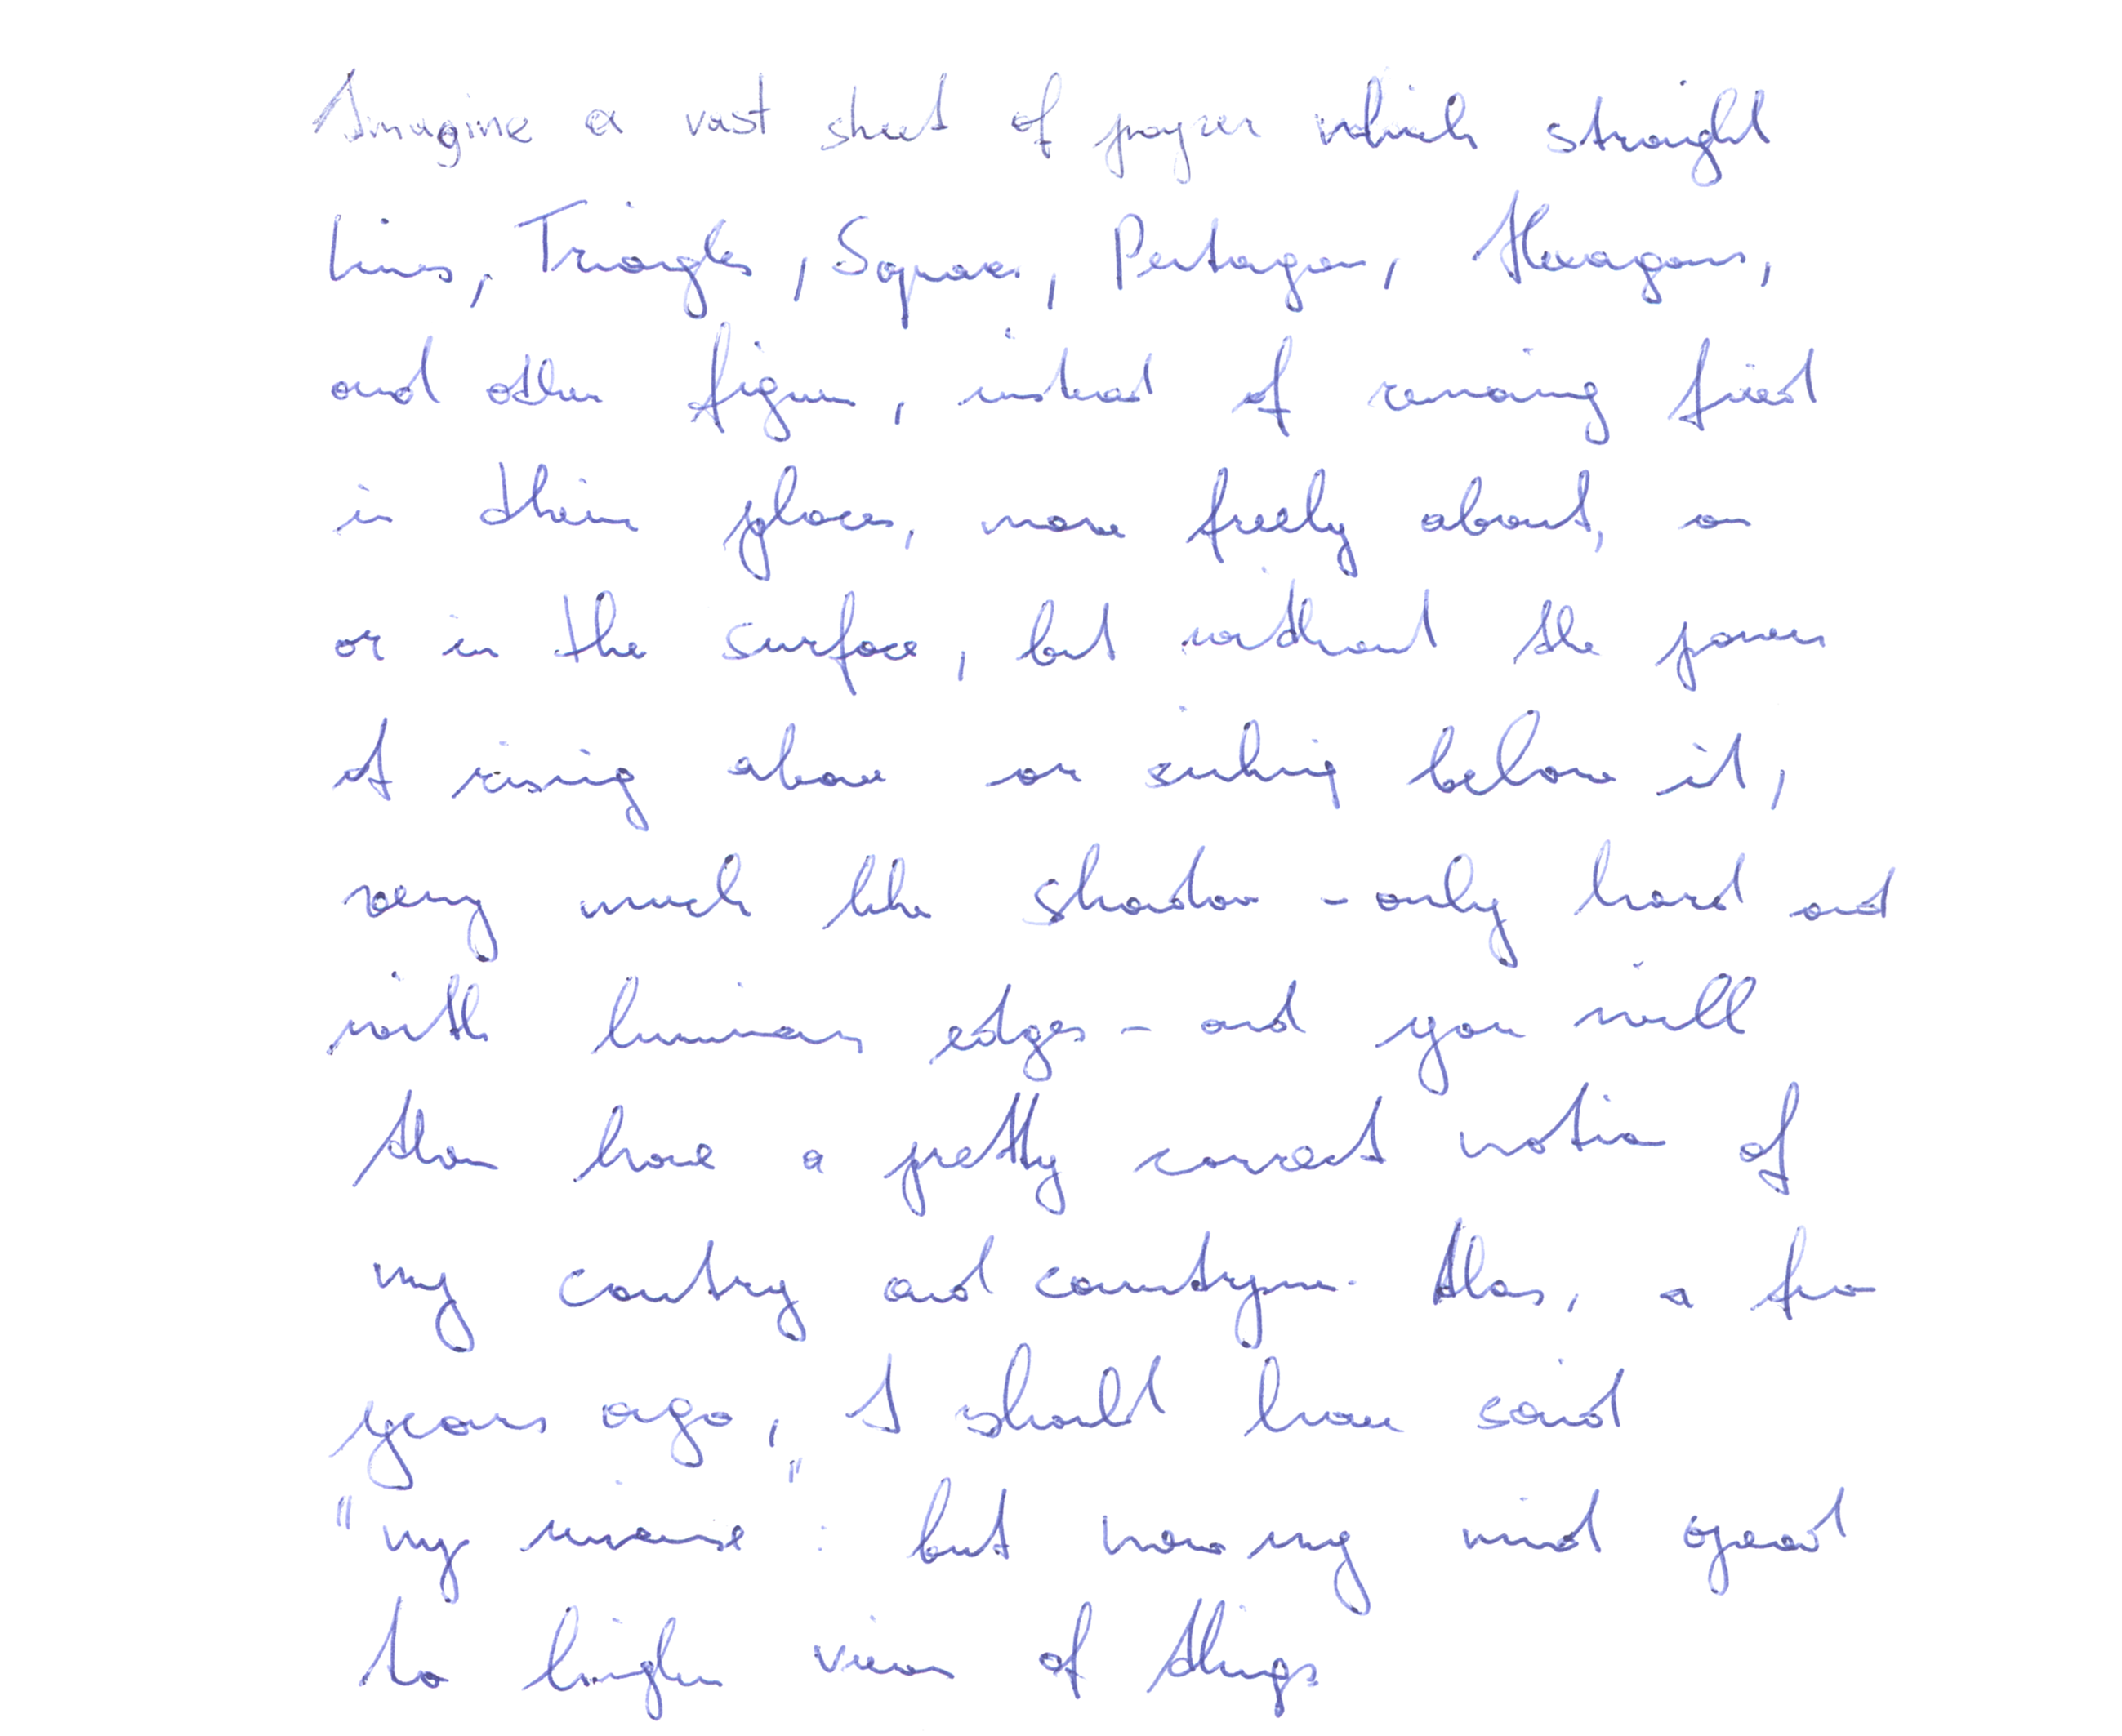 Imagine a vast sheet of paper which straight
Lines, Triangles, Squares, Pentagons, Hexagons,
and other figures, instead of remaing fixed
in their places, move freely about, on
or in the surface, but without the power
of rising above or sinking below it,
very much like shadow - only hard and
with luminous edges - and you will
then have a pretty correct notion of
my country and countrymen. Alas, a few
years ago, I should have said
"my universe": but now my mind opened
to higher views of things